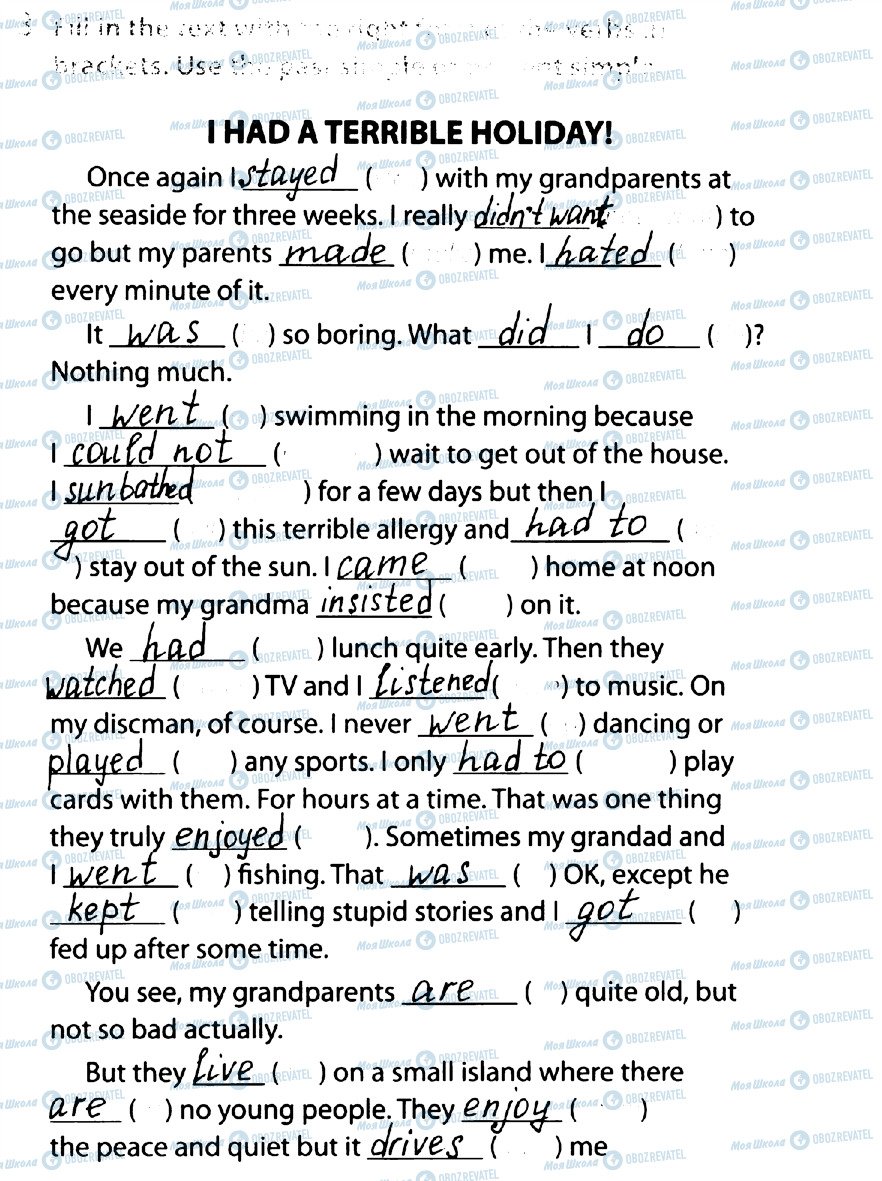 Fill in the text with the right form of the verbs in
brackets. Use the past simple or present simple.
I HAD A TERRIBLE HOLIDAY!
Once again I stayed ( ) with my grandparents at
the seaside for three weeks. I really didn't want ) to
go but my parents made ( ) me. I hated ( )
every minute of it.
It was ( ) so boring. What did I do ( )?
Nothing much.
I went ( ) swimming in the morning because
I could not ( ) wait to get out of the house.
I sunbathed ) for a few days but then I
got ( ) this terrible allergy and had to (
) stay out of the sun. I came ( ) home at noon
because my grandma insisted ( ) on it.
We had ( ) lunch quite early. Then they
watched ( ) TV and I listened ( ) to music. On
my discman, of course. I never went ( ) dancing or
played ( ) any sports. I only had to ( ) play
cards with them. For hours at a time. That was one thing
they truly enjoyed ( ). Sometimes my grandad and
I went ( ) fishing. That was ( ) OK, except he
kept ( ) telling stupid stories and I got ( )
fed up after some time.
You see, my grandparents are ( ) quite old, but
not so bad actually.
But they live ( ) on a small island where there
are ( ) no young people. They enjoy ( )
the peace and quiet but it drives ( ) me
Моя Школа OBOZREVATEL